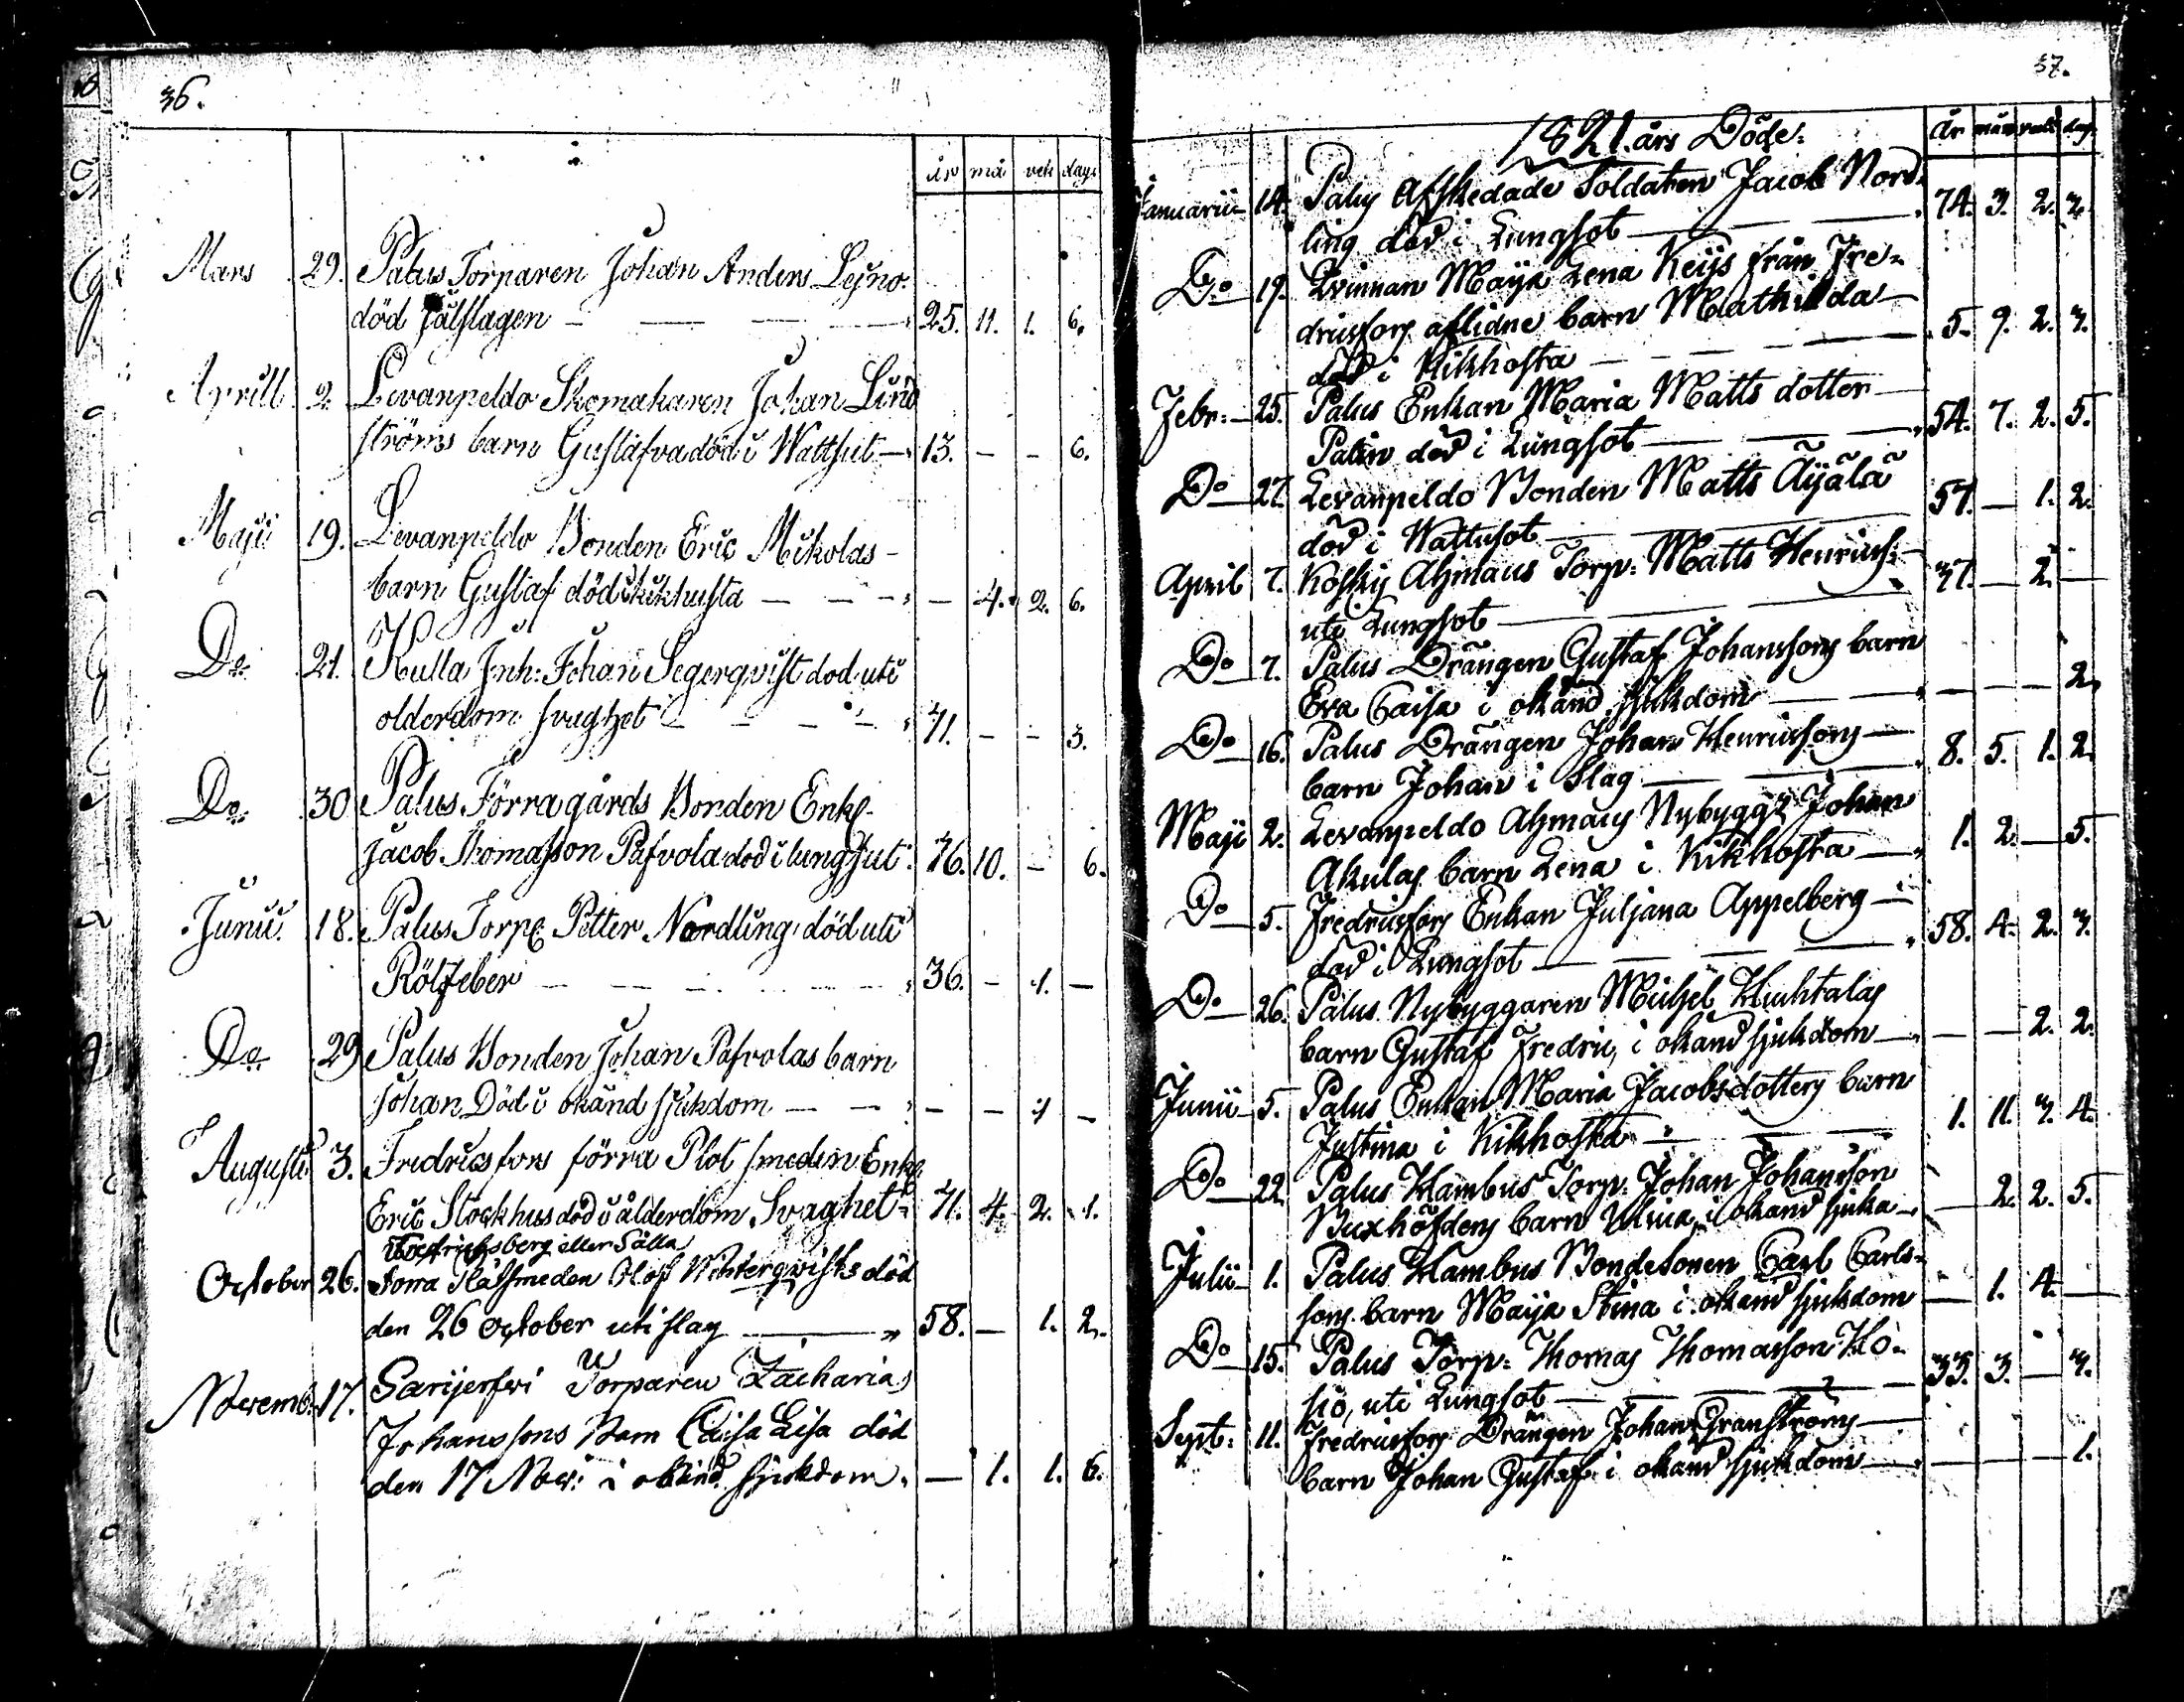 36.
år må vek dagr
Mars 29. Palus Torparen Johan Anders Lejno
död ihälslagen — — — 25. 11. 1. 6.
Aprill 2. Levanpeldo Skomakaren Johan Lind
ströms barn Gustafva död i Wattsut — 13. — — 6.
Maji 19. Levanpeldo Bonden Eric Mikolas
barn Gustaf död i kikhusta — — — — 4. 2. 6.
Do 21. Kulla Inh: Johan Segerqvist död uti
olderdom svaghet — — — 71. — — 3.
Do 30 Palus Förra gårds Bonden Enkl.
Jacob Thomasson Pafvola död i lungsut 76. 10. — 6.
Junii 18. Palus Torp: Petter Nordling död uti
Rötfeber — — — 36. — 1. —
Do 29 Palus Bonden Johan Pafvolas barn
Johan Död i okänd sjukdom — — — — 1 —
Augusti 3. Fredricsfors förra Plåt smeden Enkl
Eric Stockhus död i ålderdom Svaghet 71. 4. 2. 1.
Fredricksberg eller Sälla
October 26. Förra Plåtsmeden Olof Wintergwists död
den 26 October uti slag — 58. — 1. 2.
Novemb. 17. Sarijerfwi Torparen Zacharias
Johanssons Barn Caisa Lisa död
den 17 Nov: i okänd sjukdom. — 1. 1. 6.
37.
1821. års Döde: År mån vek dag
Januarii 14. Palus Afskedade Soldaten Jacob Nord-
ling död i Lungsot — 74. 3. 2. 2.
Do 19. Qvinnan Maija Lena Keijs från Fre-
dricsfors aflidne barn Mathilda —
död i Kikhosta — — — 5. 9. 2. 3.
Febr: 25. Palus Enkan Maria Matts dotter
Palin död i Lungsot — 54. 7. 2. 5.
Do 27. Levanpeldo Bonden Matts Äijälä
död i Wattusot — 57. — 1. 2.
April 7. Kosky Ahmaus Torp: Matts Henrics:
uti Lungsot — 37. — 2. —
Do 7. Palus Drängen Gustaf Johanssons barn
Eva Caisa i okänd sjukdom — — — — 2.
Do 16. Palus Drängen Johan Henricsons
barn Johan i Slag — 8. 5. 1. 2.
Maji 2. Levanpeldo Ahmaus Nybygg: Johan
Akulas barn Lena i Kikhosta — 1. 2. — 5.
Do 5. Fredricsfors Enkan Juljana Appelberg
död i Lungsot — — — 58. 4. 2. 3.
Do 26. Palus Nybyggaren Michel Huhtalas
barn Gustaf Fredric, i okänd sjukdom — — — 2. 2.
Junii 5. Palus Enkan Maria Jacobsdotters barn
Justina i Kikhosta — 1. 11. 3. 4.
Do 22. Palus Klambus Torp: Johan Johansson
Buxhöfdens barn Ulrica i okänd sjuka — — 2. 2. 5.
Julii 1. Palus Klambus Bondesonen Carl Carls-
sons barn Maija Stina i okänd sjukdom — 1. 4. —
Do 15. Palus Torp: Thomas Thomasson Ho-
siö, uti Lungsot — 33. 3. — 3.
Sept: 11. Fredricsfors Drängen Johan Granströms
barn Johan Gustaf i okänd sjukdom — — — — 1.